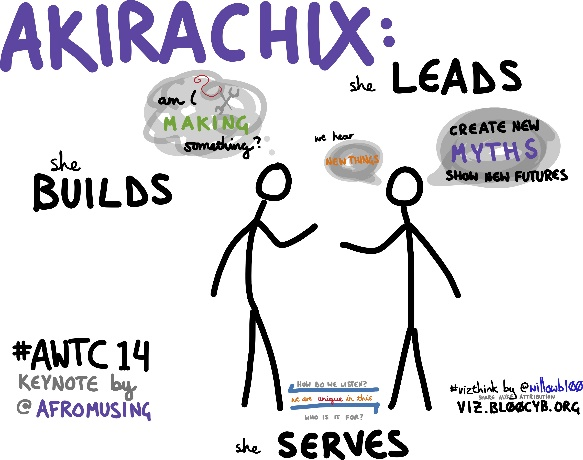 AKIRACHIX:
she LEADS
am I
MAKING
something?
we hear
NEW THINGS
CREATE NEW
MYTHS
SHOW NEW FUTURES
she
BUILDS
#AWTC14
KEYNOTE by
@AFROMUSING
HOW DO WE LISTEN?
we are unique in this
WHO IS IT FOR?
#vizthink by @willowbl00
SHARE ATTRIBUTION
VIZ.BL00CYB.ORG
she SERVES